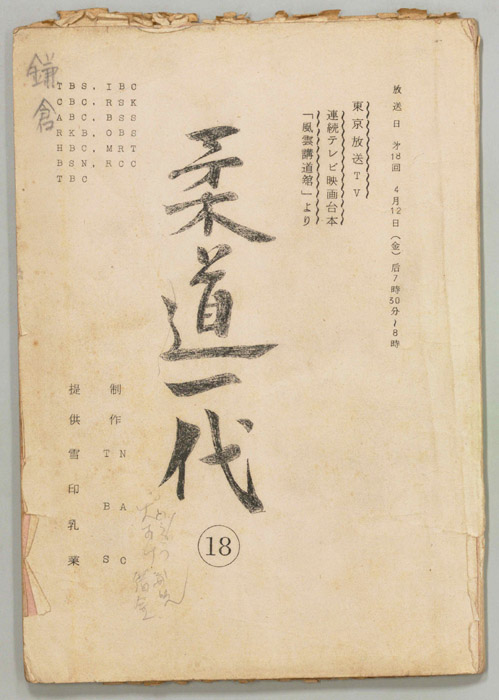 放送日 才18回 4月12日(金)后7時30分〜8時
東京放送TV
連続テレビ映画台本
「風雲講道館」より
柔道一代
18
鎌倉
TBS, IBC
CBC, RSK
ABC, BSS
RKB, OBS
HBC, MRT
BSN, RCC
TBC
制作 TBS
NAC
提供雪印乳業